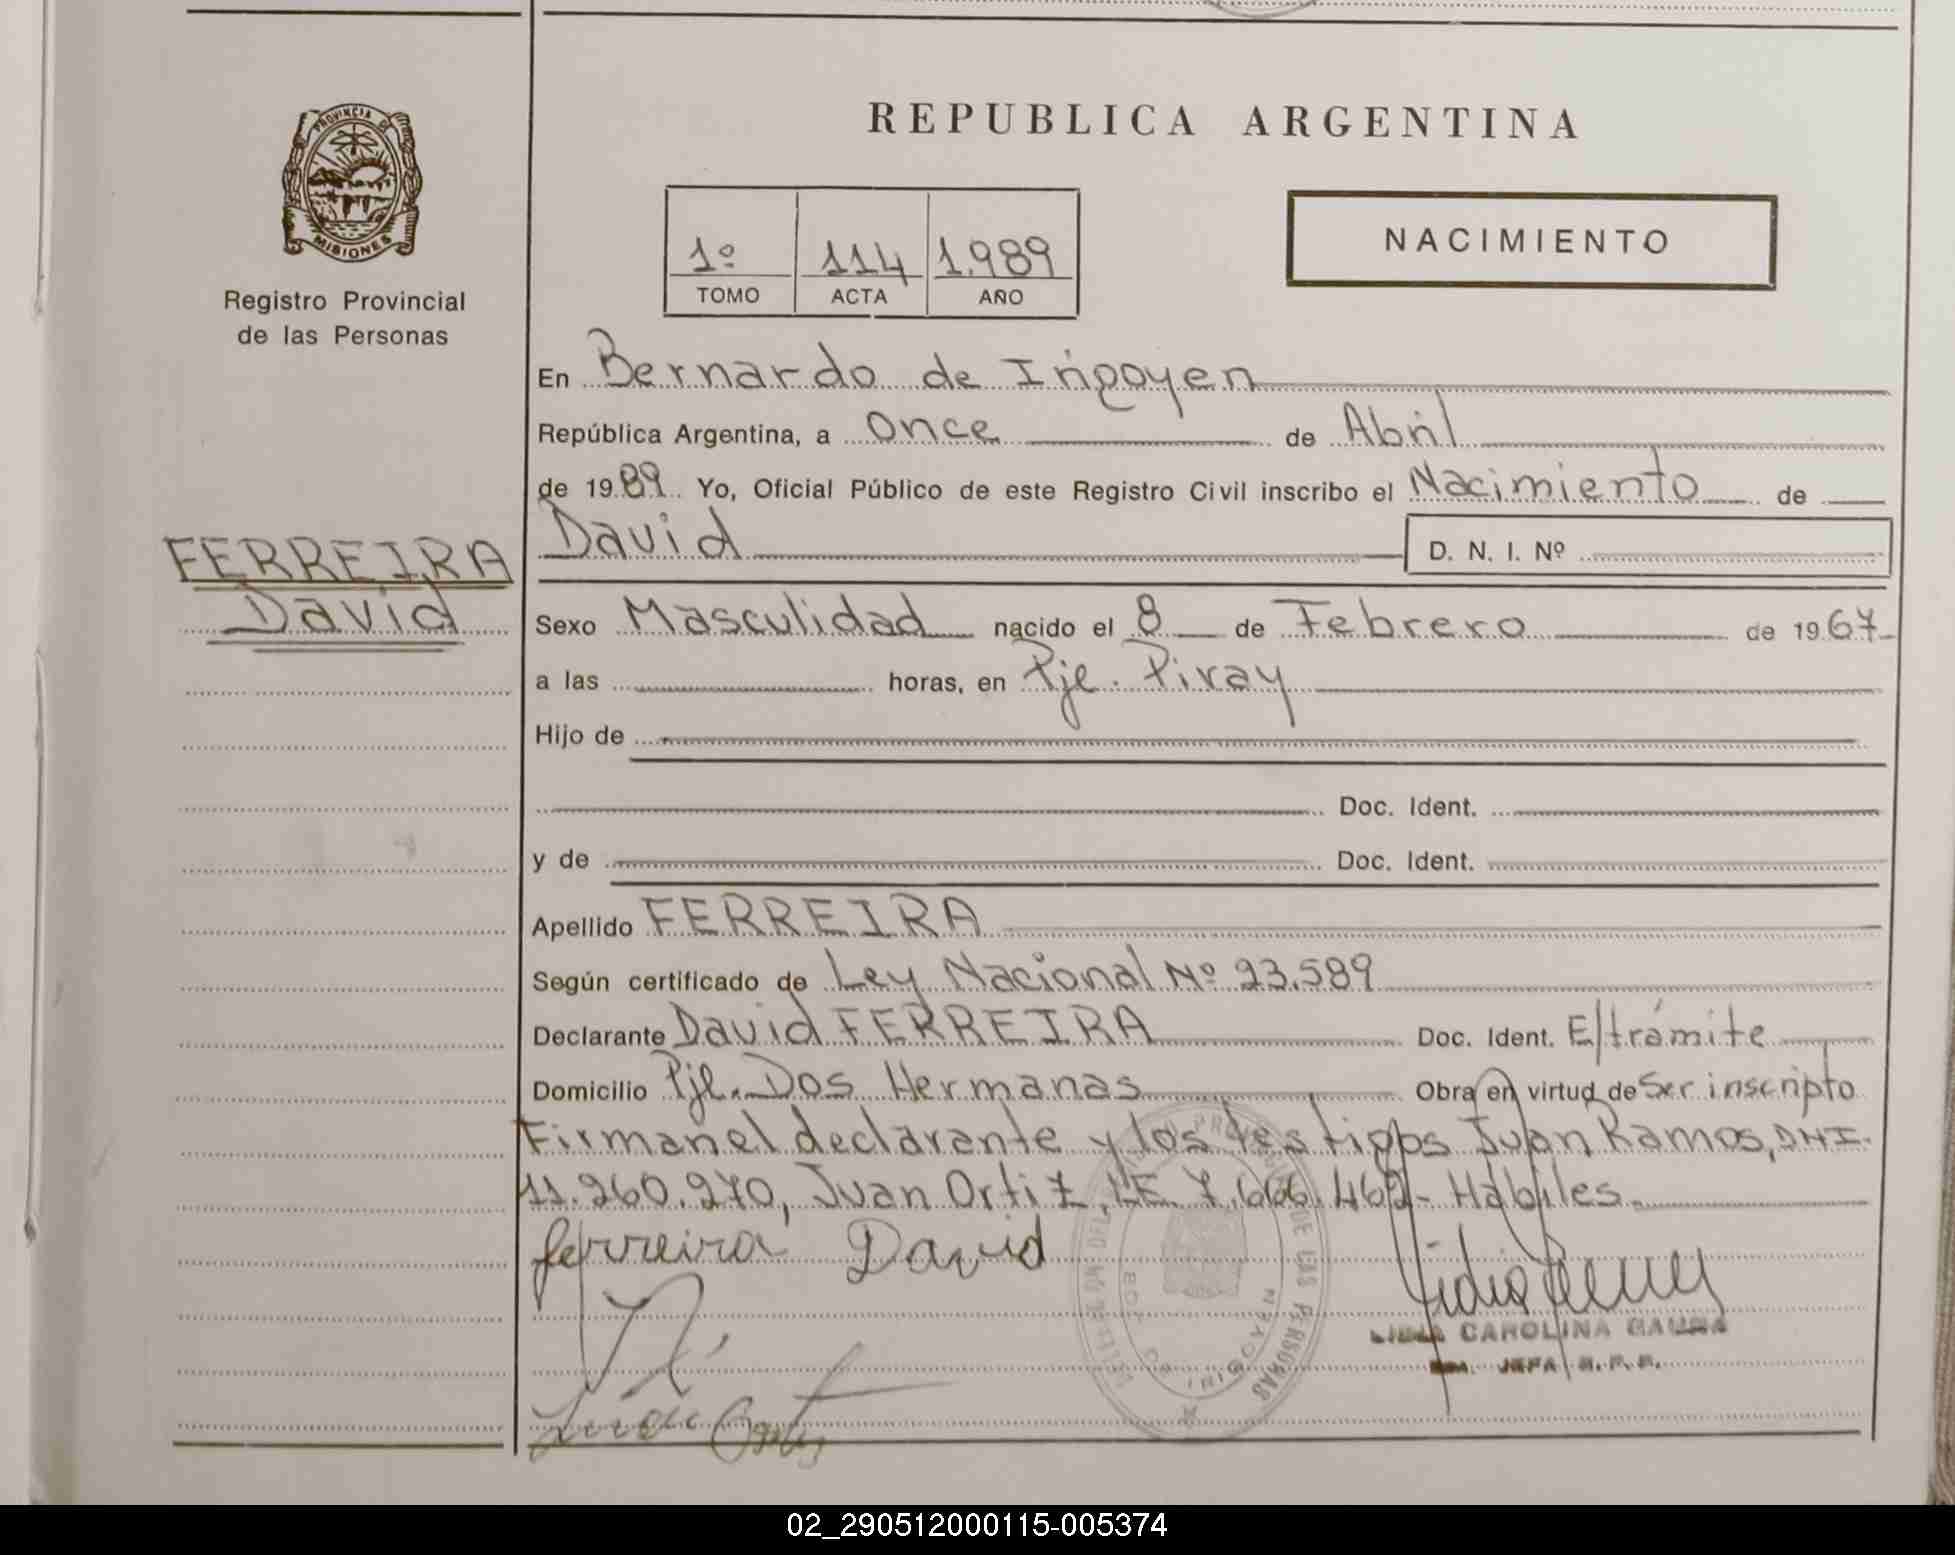 REPUBLICA ARGENTINA
PROVINCIA DE
MISIONES
Registro Provincial
de las Personas
1º 114 1.989
TOMO ACTA AÑO
NACIMIENTO
En Bernardo de Irigoyen
República Argentina, a Once de Abril
de 1989 Yo, Oficial Público de este Registro Civil inscribo el Nacimiento de
David D. N. I. Nº
FERREIRA
David
Sexo Masculidad nacido el 8 de Febrero de 1967
a las horas, en Pje. Piray
Hijo de
Doc. Ident.
y de Doc. Ident.
Apellido FERREIRA
Según certificado de Ley Nacional Nº 23.589
Declarante David FERREIRA Doc. Ident. E/trámite
Domicilio Pje. Dos Hermanas Obra en virtud de Ser inscripto
Firman el declarante y los testigos Juan Ramos, DNI.
11.260.270, Juan Ortiz, LE 7.666.462- Hábiles.
Ferreira David
DE LAS PERSONAS
DE IRIGOYEN
CAROLINA
JEFA R.P.P.
02_290512000115-005374